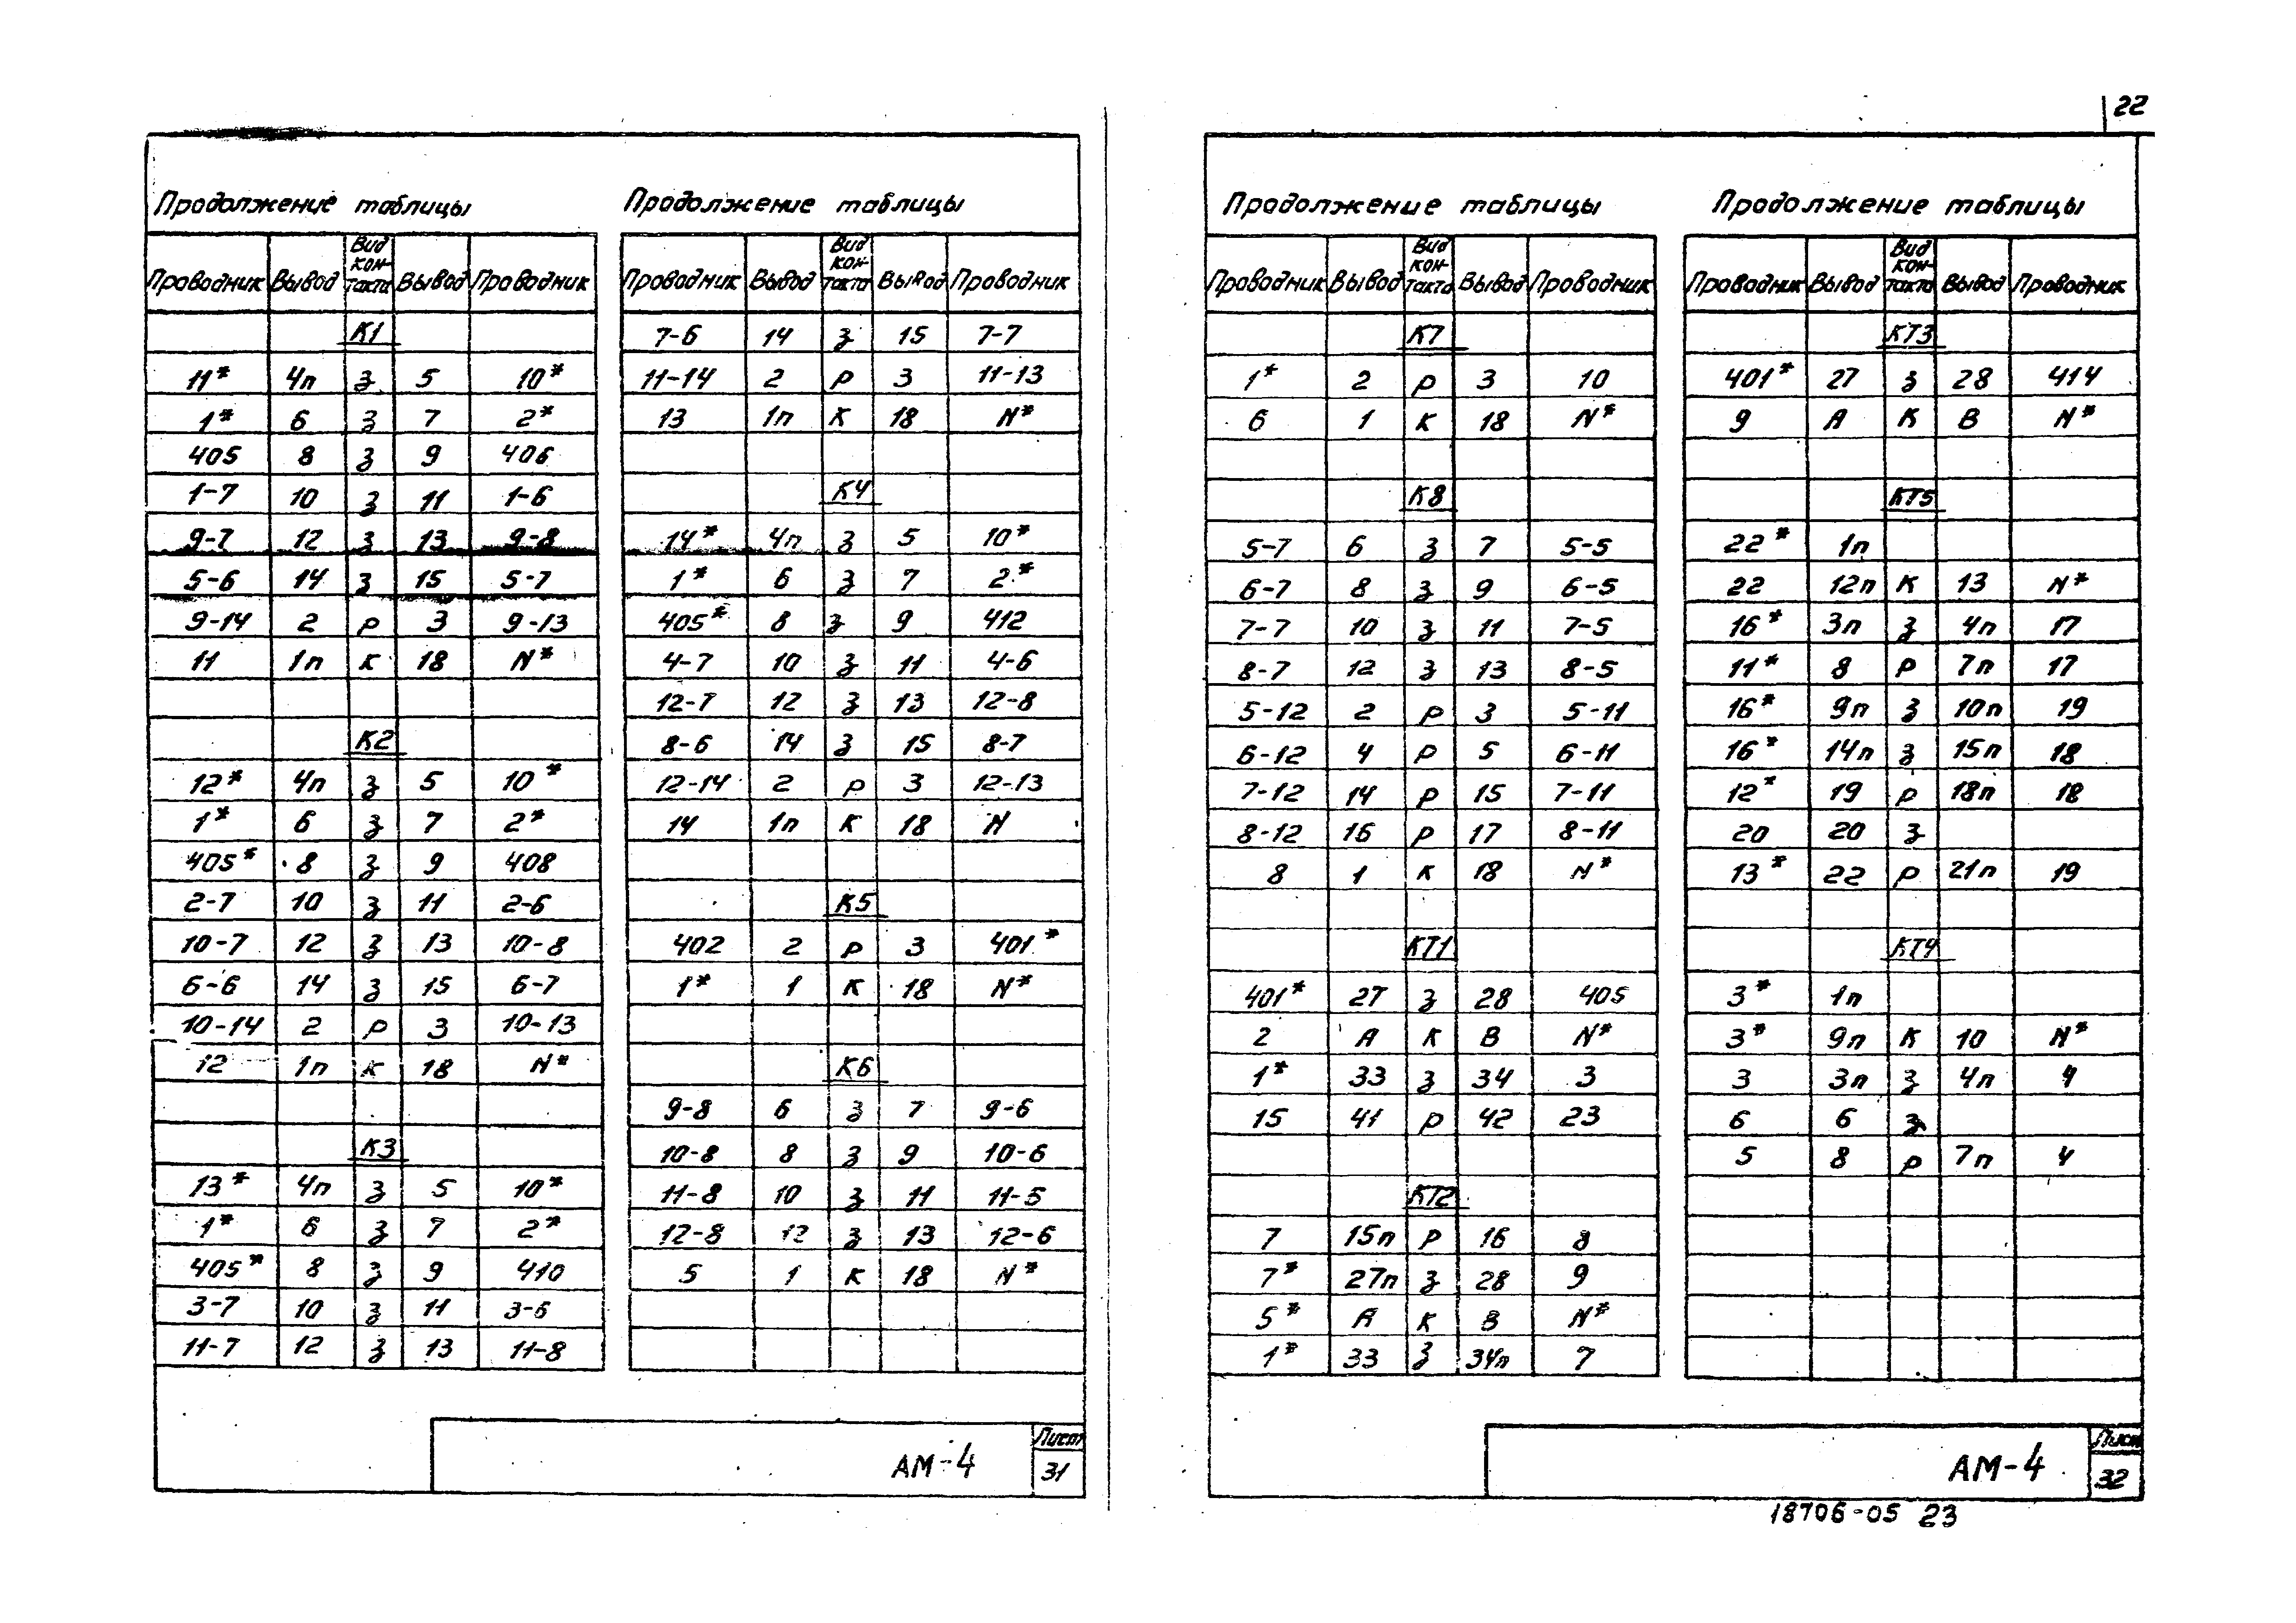 22
Продолжение таблицы
Проводник Вывод Вид контакта Вывод Проводник
К1
11* 4п з 5 10*
1* 6 з 7 2*
405 8 з 9 406
1-7 10 з 11 1-6
9-7 12 з 13 9-8
5-6 14 з 15 5-7
9-14 2 р 3 9-13
11 1п к 18 N*
К2
12* 4п з 5 10*
1* 6 з 7 2*
405* 8 з 9 408
2-7 10 з 11 2-6
10-7 12 з 13 10-8
6-6 14 з 15 6-7
10-14 2 р 3 10-13
12 1п к 18 N*
К3
13* 4п з 5 10*
1* 6 з 7 2*
405* 8 з 9 410
3-7 10 з 11 3-6
11-7 12 з 13 11-8
Продолжение таблицы
Проводник Вывод Вид контакта Вывод Проводник
7-6 14 з 15 7-7
11-14 2 р 3 11-13
13 1п к 18 N*
К4
14* 4п з 5 10*
1* 6 з 7 2*
405* 8 з 9 412
4-7 10 з 11 4-6
12-7 12 з 13 12-8
8-6 14 з 15 8-7
12-14 2 р 3 12-13
14 1п к 18 N
К5
402 2 р 3 401*
1* 1 к 18 N*
К6
9-8 6 з 7 9-6
10-8 8 з 9 10-6
11-8 10 з 11 11-5
12-8 12 з 13 12-6
5 1 к 18 N*
АМ-4
Лист
31
Продолжение таблицы
Проводник Вывод Вид контакта Вывод Проводник
К7
1* 2 р 3 10
6 1 к 18 N*
К8
5-7 6 з 7 5-5
6-7 8 з 9 6-5
7-7 10 з 11 7-5
8-7 12 з 13 8-5
5-12 2 р 3 5-11
6-12 4 р 5 6-11
7-12 14 р 15 7-11
8-12 16 р 17 8-11
8 1 к 18 N*
КТ1
401* 27 з 28 405
2 А к В N*
1* 33 з 34 3
15 41 р 42 23
КТ2
7 15п р 16 8
7* 27п з 28 9
5* А к В N*
1* 33 з 34п 7
Продолжение таблицы
Проводник Вывод Вид контакта Вывод Проводник
КТ3
401* 27 з 28 414
9 А к В N*
КТ5
22* 1п
22 12п к 13 N*
16* 3п з 4п 17
11* 8 р 7п 17
16* 9п з 10п 19
16* 14п з 15п 18
12* 19 р 18п 18
20 20 з
13* 22 р 21п 19
КТ4
3* 1п
3* 9п к 10 N*
3 3п з 4п 4
6 6 з
5 8 р 7п 4
АМ-4
Лист
32
18706-05 23